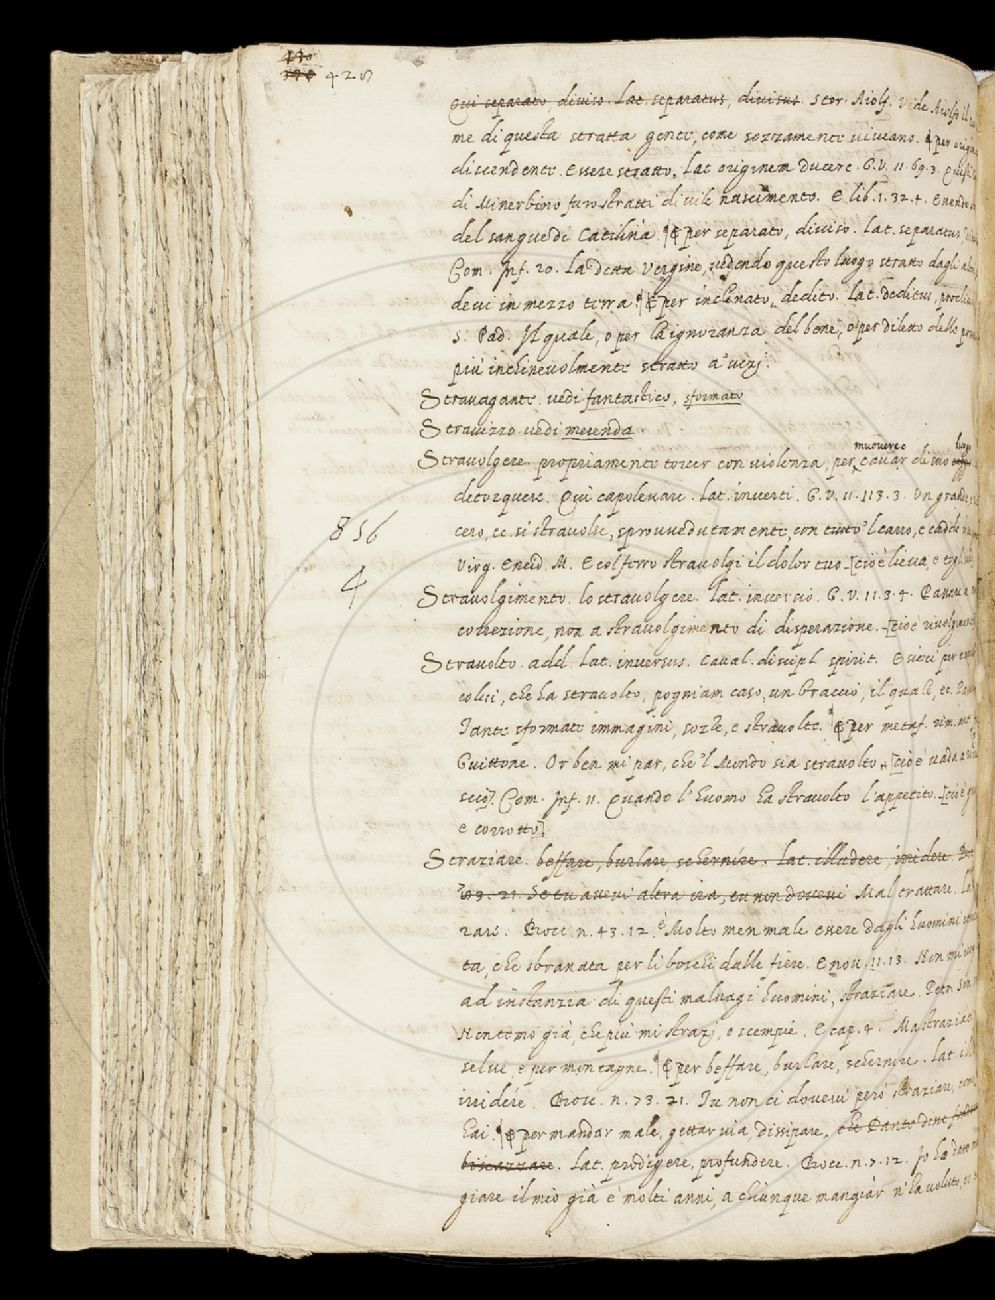 428
Qui separato, diviso. Lat. separatus, divisus. Stor. Aiolf. Vede Aiolfo il
me di questa stratta gente, come sozzamente viveano. ¶ per origine
discendente. Essere stratto. Lat. originem ducere. G.V. 11.69.3. Questi
di Minerbino furo stratti di vile nascimento. E lib.1.32.4. Essendo
del sangue di Catilina. ¶ E per separato, diviso. Lat. separatus
Com. Inf. 20. La detta vergine, vedendo questo luogo stratto dagli
de vi in mezzo terra. ¶ E per inclinato, dedito. Lat. deditus,
S. Pad. Il quale, o per la ignoranza del bene, o per diletto dello
più inchinevolmente stratto a' vizj.
Stravagante. vedi fantastico, sformato
Stravizzo vedi merenda
muovere e luogo
Stravolgere propriamente torcer con violenza, per cavar di suo
detorquere. Qui capolevare. Lat. inverti. G.V. 11.113.3. Un grande
cero, ec. si stravolse, sprovvedutamente, con tutto 'l carro, e cadde
856
Virg. Eneid. M. E col ferro stravolgi il dolor tuo [cioè lieva, e togli
4
Stravolgimento. lo stravolgere. Lat. inversio. G.V. 11.3.4. Passare a
correzione, non a stravolgimento di disperazione. [cioè rivolgimento
Stravolto. add. Lat. inversus. Caval. discipl. spirit. E sieci per
colui, che ha stravolto, pogniam caso, un braccio, il quale, ec.
Tante sformate immagini, sozze, e stravolte. ¶ E per metaf. rim. ant.
Guittone. Or ben mi par, che 'l Mondo sia stravolto [cioè vada a
scio]. Com. Inf. 11. Quando l'huomo ha stravolto l'appetito. [cioè
e corrotto]
Straziare. beffare, burlare, schernire. Lat. illudere, irridere.
Se tu avevi altra ira, tu non dovevi Maltrattare.
rare. Bocc. n. 43.12. Molto men male essere dagli huomini
ta, che sbranata per li boschi dalle fiere. E nov. 11.13. Non mi
ad instanzia di questi malvagi huomini, straziare. Petr.
Non temo già, che più mi strazj, o scempie. E cap. 4. Ma straziati
selve, e per montagne. ¶ E per beffare, burlare, schernire. Lat.
irridere. Bocc. n. 73.21. Tu non ci dovevi però straziare, come
hai. ¶ E per mandar male, gettar via, dissipare, che Dante disse
biscazzare. Lat. prodigere, profundere. Bocc. n. 7.12. Io ho dato
giare il mio già è molti anni, a chiunque mangiar n'ha voluto,